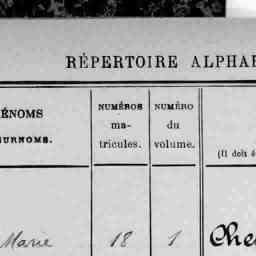 RÉPERTOIRE ALPHA
ÉNOMS
SURNOMS.
NUMÉROS
ma-
tricules.
NUMÉRO
du
volume.
(Il doit ê
Marie 18 1 Che